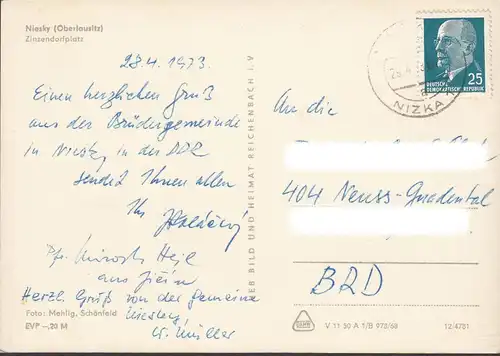 Niesky (Oberlausitz)
Zinzendorfplatz
28.4.1973
Einen herzlichen Gruß
aus der Brüdergemeinde
in Niesky in der DDR
sendet Ihnen allen
Ihr
Pfr. Hejl
aus Jičín
Herzl. Gruß von der Gemeine
Niesky
Müller
Foto: Mehlig, Schönfeld
EVP –,20 M
BILD UND HEIMAT REICHENBACH i. V
25
DEUTSCHE
DEMOKRATISCHE REPUBLIK
NIZKA
An die
404 Neuss-Gnadental
BRD
V 11 50 A 1/B 978/68
12/4781